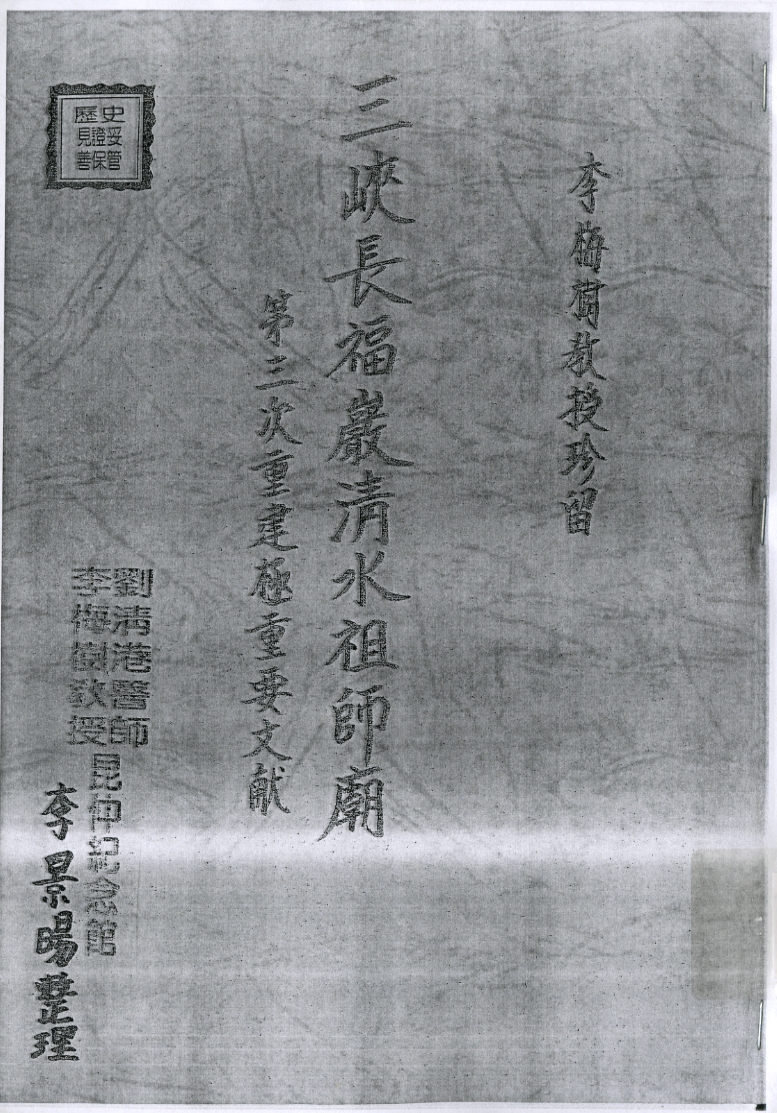 李梅樹教授珍留
三峽長福巖清水祖師廟
第三次重建極重要文献
歷史
見證妥
善保管
劉清港醫師
李梅樹教授
昆仲紀念館
李景暘整理